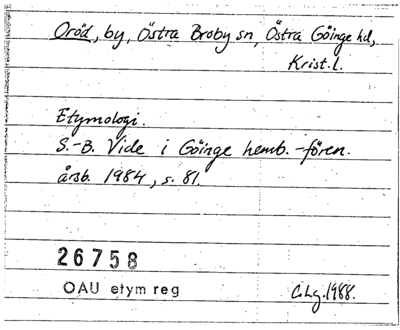 Oröd, by, Östra Broby sn, Östra Göinge hd,
Krist.l.
Etymologi.
S.-B. Vide i Göinge hemb.-fören.
årsb. 1984, s. 81.
26758
OAU etym reg
C.Lg. 1988.